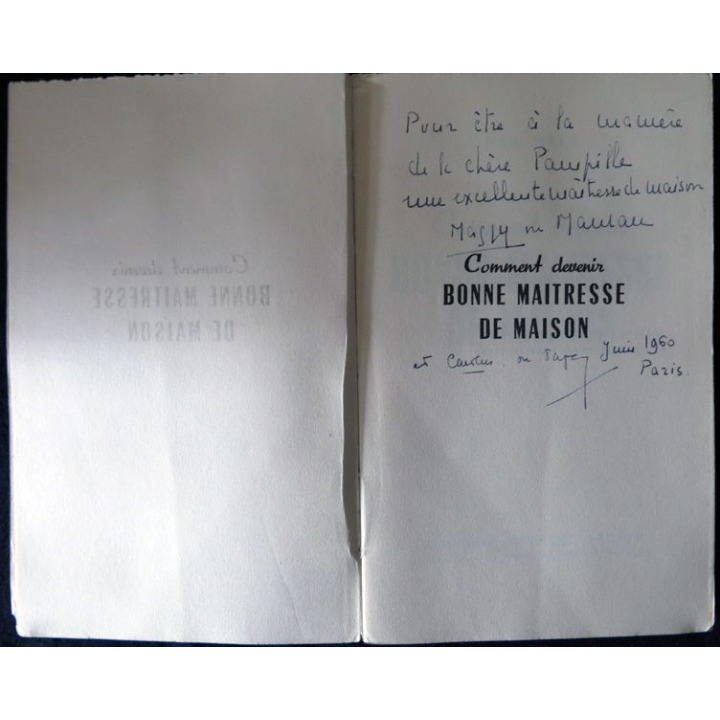 Pour être à la manière
de la chère Pampille
une excellente maîtresse de maison
Maggy ou
Comment devenir
BONNE MAITRESSE
DE MAISON
et ou Juin 1960
Paris.